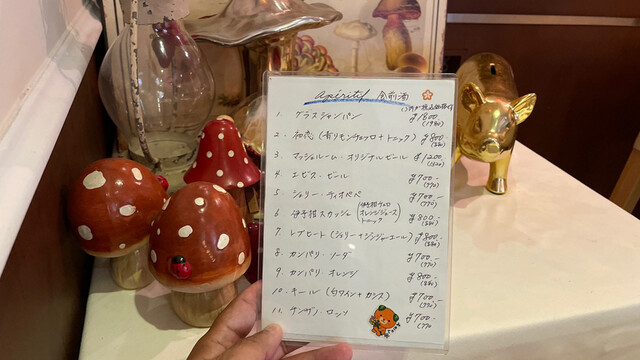 apéritif 食前酒
1. グラスシャンパン ¥1800 (1980)
2. (青リモンチェッロ+トニック) ¥800 (880)
3. マッシュルーム・オリジナルビール ¥1200 (1320)
4. エビス・ビール ¥700- (770)
5. シェリー・ティオペペ ¥700- (770)
6. 伊予柑スカッシュ (伊予柑チェロ
オレンジジュース
トニック) ¥800- (880)
7. レブヒート (シェリー+ジンジャーエール) ¥800- (880)
8. カンパリ・ソーダ ¥700- (770)
9. カンパリ・オレンジ ¥800- (880)
10. キール (白ワイン+カシス) ¥700- (770)
11. チンザノ・ロッソ ¥700- (770